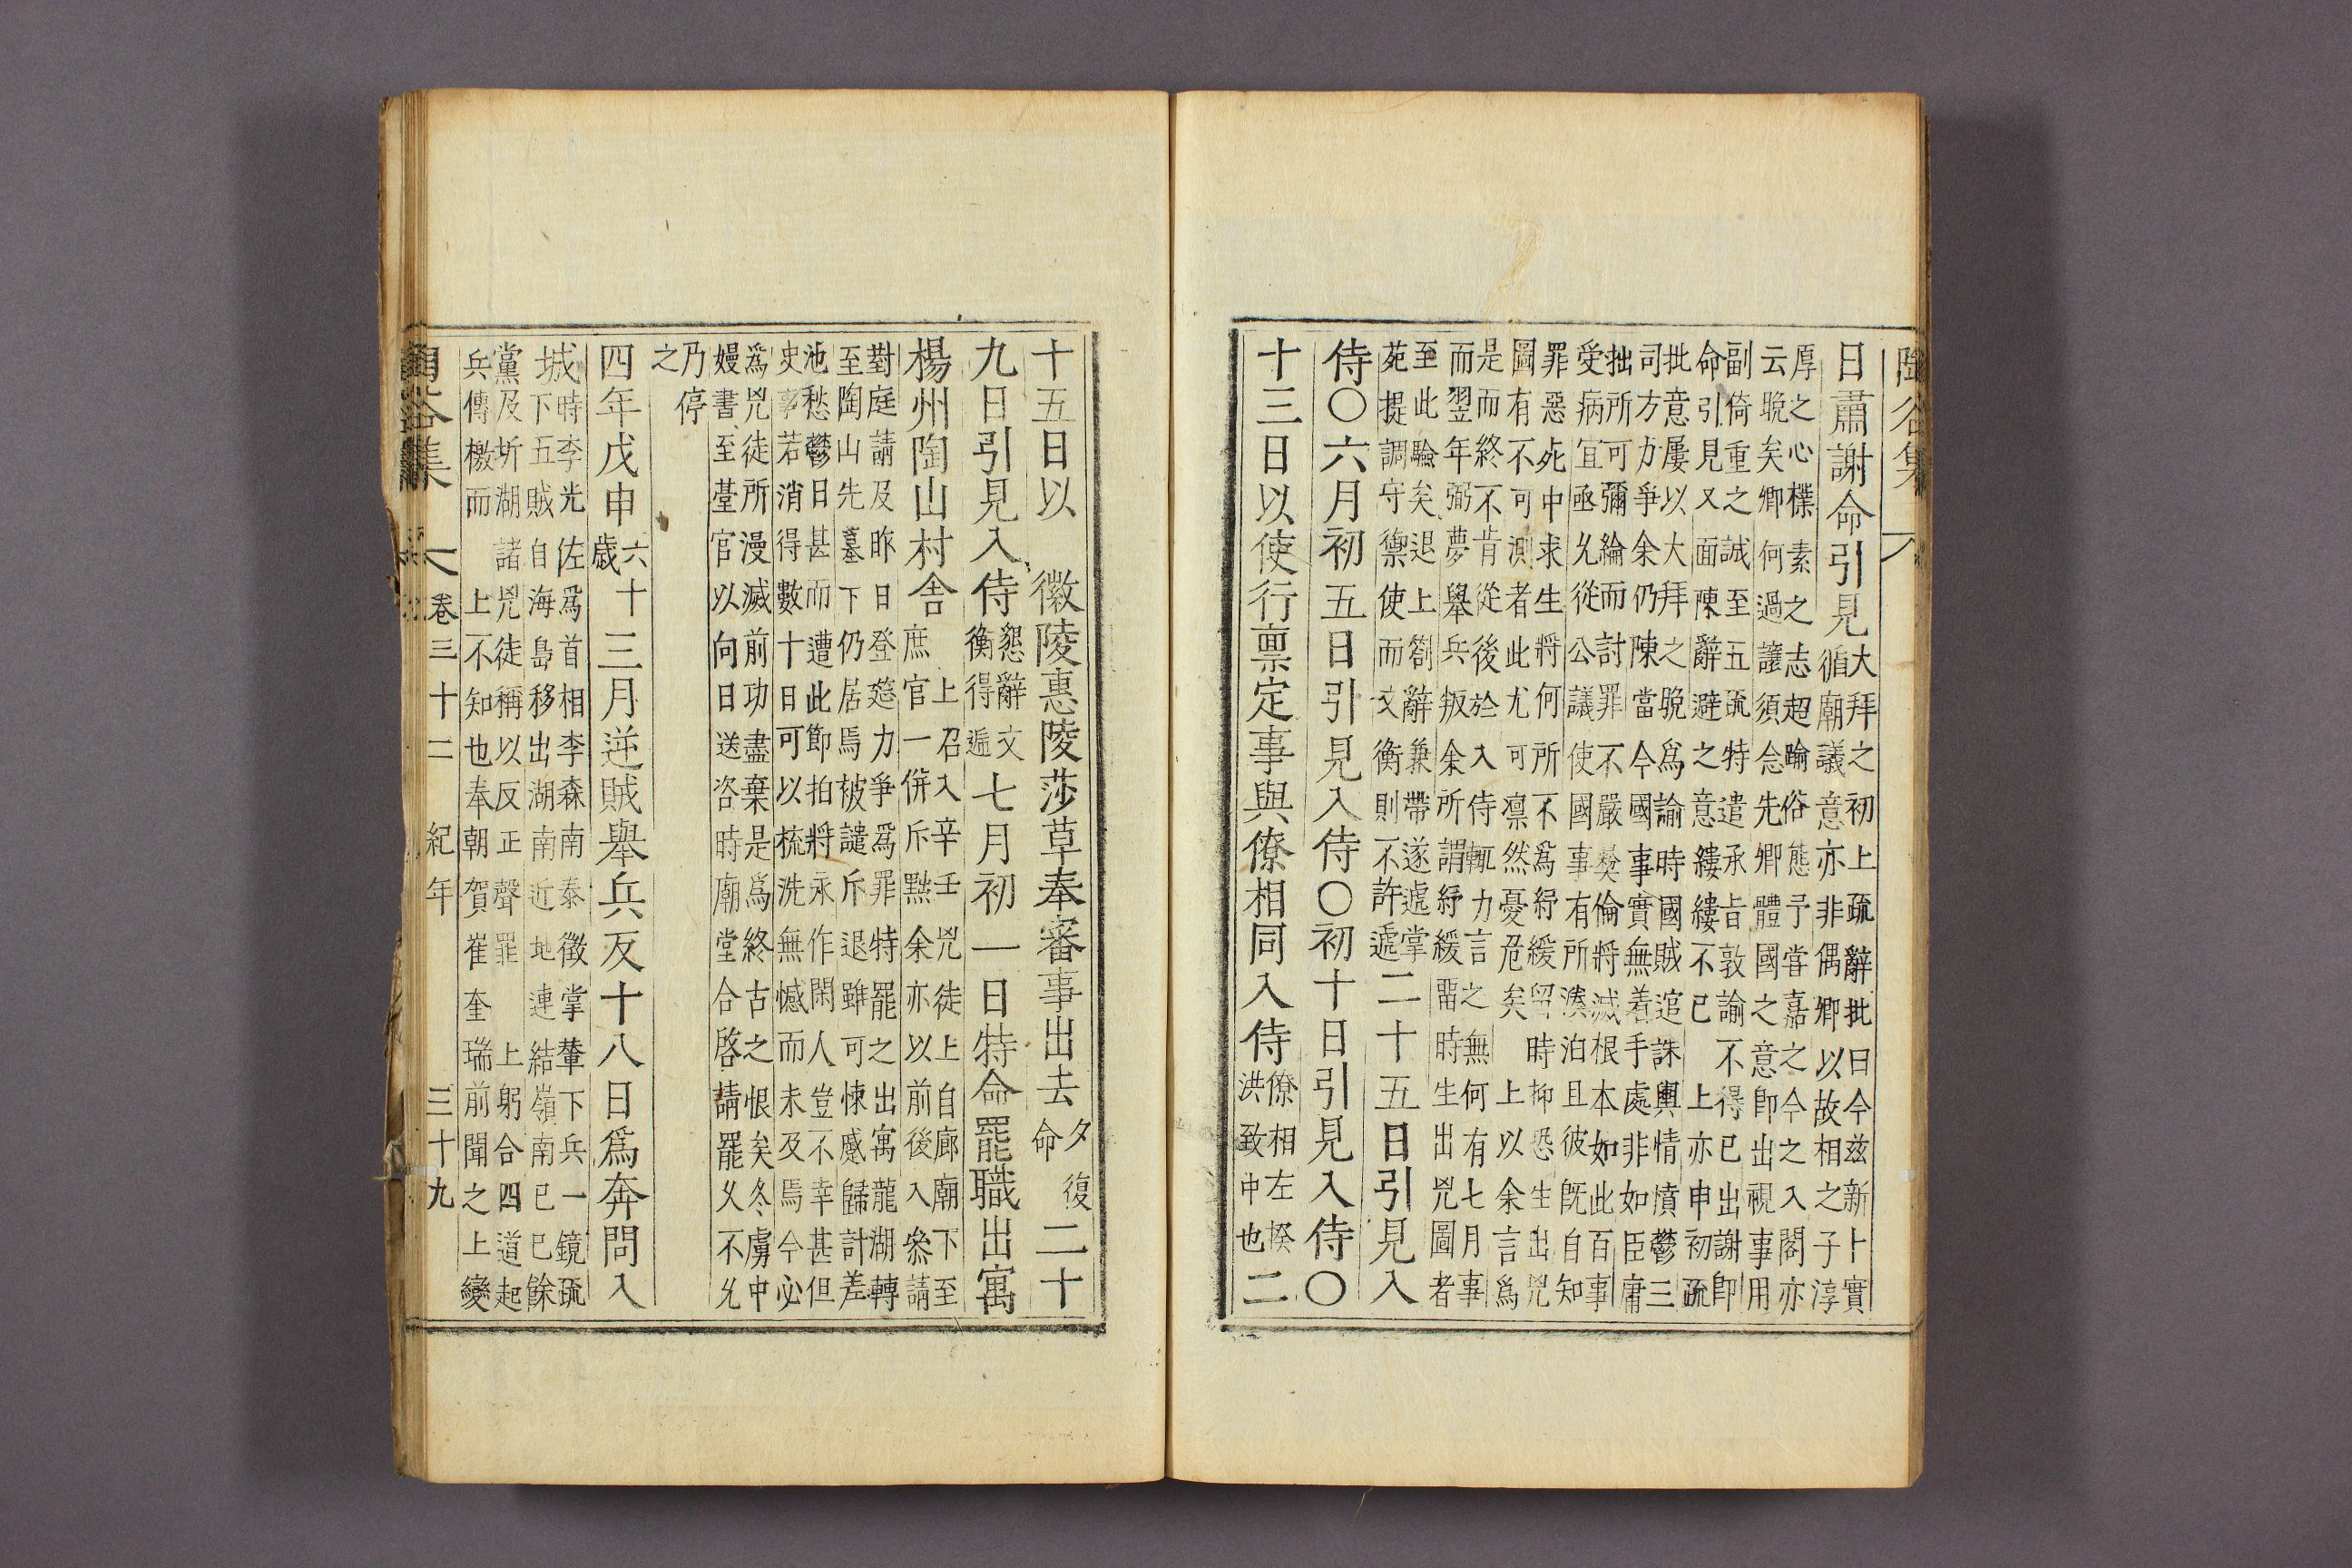 陶谷集
日肅謝命引見
大拜之初上疏辭批曰今茲新卜實
循廟議意亦非偶卿以故相之子淳
厚之心樸素之志超踰俗態予嘗嘉之今之入閣亦
云晩矣卿何過讓須念先卿體國之意卽出視事用
副倚重之誠至五疏特遣承旨敦諭不得已出謝卽
命引見又面陳辭避之意縷縷不已上亦申初疏
批意屢以大拜之晩爲諭時國賊逭誅輿情憤鬱三
司方力爭余仍陳當今國事實無着手處非如臣庸
拙所可彌綸而討罪不嚴彜倫將滅根本如此百事
受病宜亟允從公議使國事有所湊泊且彼旣自知
罪惡死中求生將何所不爲紓緩留時抑恐生出兇
圖有不可測者此尤可凜然憂危矣 上以余言爲
是而終不肯從後於入侍輒力言之無何有七月事
而翌年弼夢擧兵叛余所謂紓緩畱時生出兇圖者
至此驗矣退上箚辭兼帶遂遞掌
苑提調守禦使而文衡則不許遞
二十五日引見入
侍〇六月初五日引見入侍〇初十日引見入侍〇
十三日以使行稟定事與僚相同入侍
僚相左揆
洪致中也
二
十五日以 徽陵惠陵莎草奉審事出去
夕復
命
二十
九日引見入侍
懇辭文
衡得遞
七月初一日特命罷職出寓
楊州陶山村舍
上召入辛壬兇徒上自廊廟下至
庶官一倂斥黜余亦以前後入參請
對庭請及昨日登筵力爭爲罪特罷之出寓龍湖轉
至陶山先墓下仍居焉被譴斥退雖可悚慼歸計差
池愁鬱日甚而遭此節拍將永作閑人豈不幸甚但
史事若消得數十日可以梳洗無憾而未及焉今必
爲兇徒所漫滅前功盡棄是爲終古之恨矣冬虜中
嫚書至臺官以向日送咨時廟堂合啓請罷久不允
乃停
之
四年戊申
六十
歲
三月逆賊擧兵反十八日爲奔問入
城
時李光佐爲首相李森南泰徵掌輦下兵一鏡疏
下五賊自海島移出湖南近地連結嶺南已已餘
黨及圻湖諸兇徒稱以反正聲罪 上躬合四道起
兵傳檄而 上不知也奉朝賀崔奎瑞前聞之上變
陶谷集
卷三十二 紀年 三十九